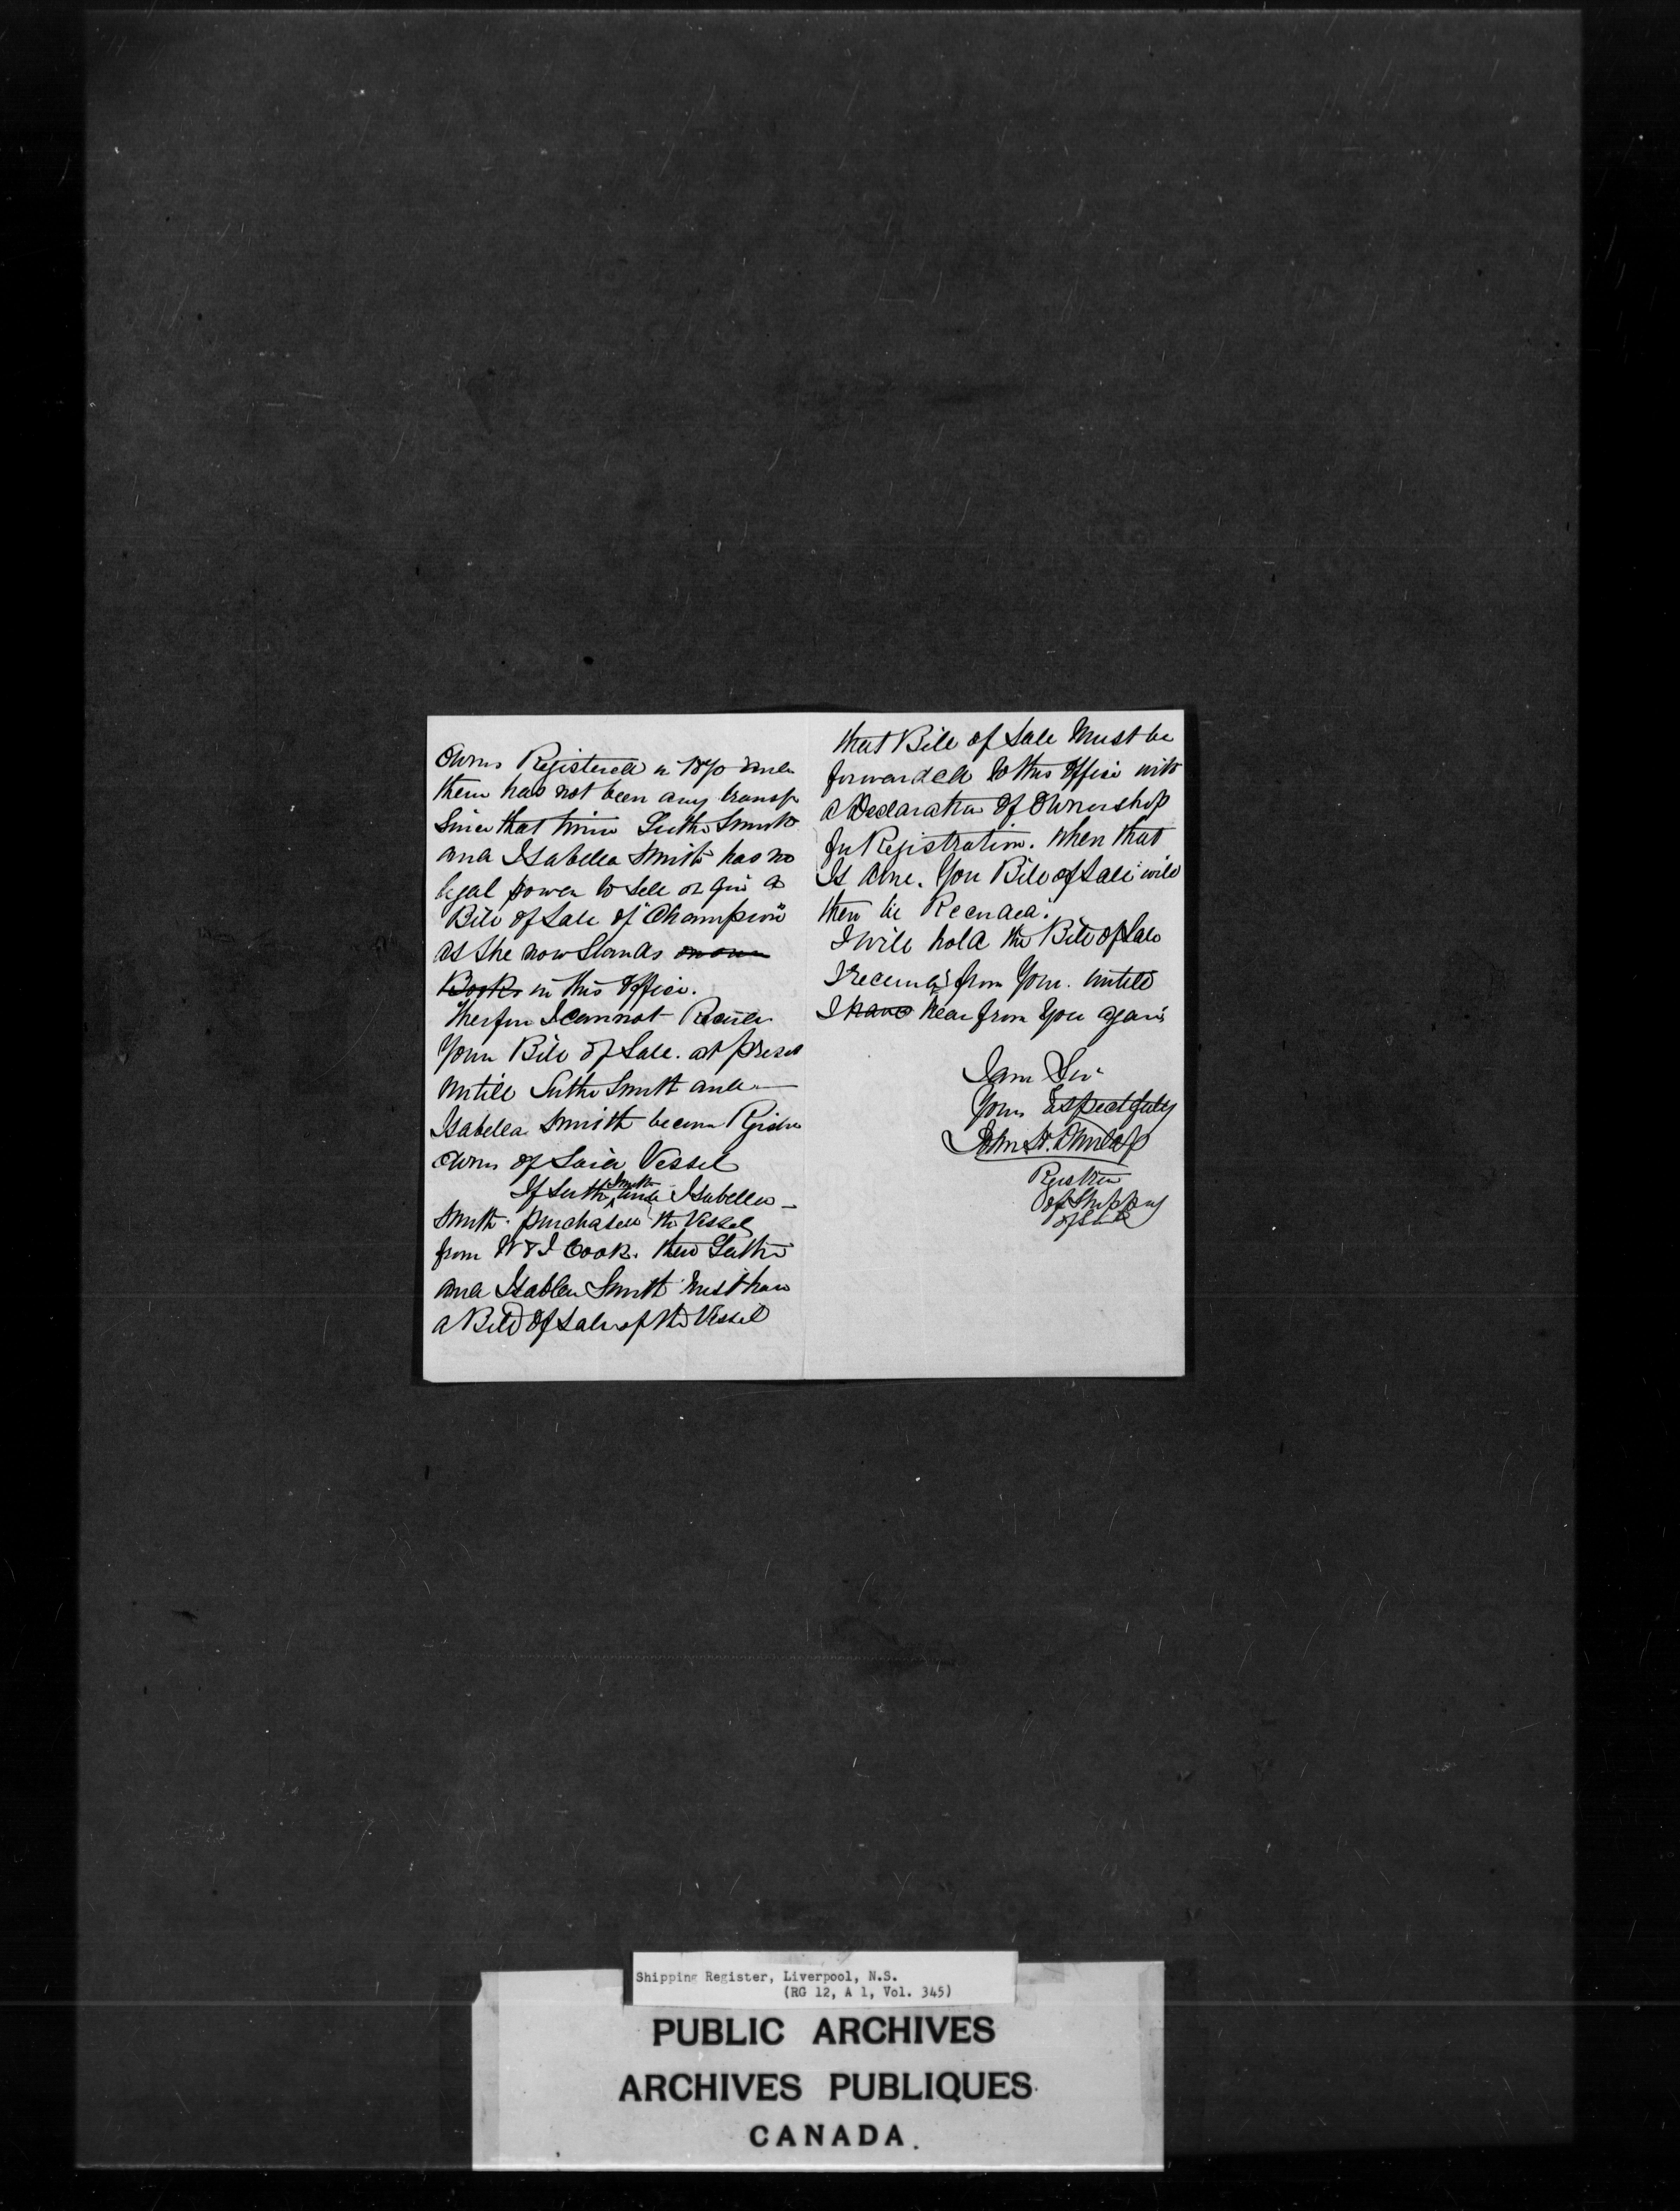 Owners Registered in 1870 and
there has not been any transfr
Since that time Luther Smith
and Isabella Smith has no
legal power to sell or give a
Bill of Sale of "Champion"
as she now Stands on our
Books in this office.
Therfor I cannot
Your Bill of Sale. at present
untill Luther Smith and
Isabella Smith become
Owners of Said Vessel
If Luther Smith and Isabella
Smith purchased the Vessel
from W & J Cook. then Luther
and Isabella Smith must have
a Bill of Sale of the Vessel
that Bill of Sale Must be
forwarded to this office with
a Declaration of Ownership
for Registration. When that
Is done. Your Bill of Sale will
then be Recorded.
I will hold the Bill of Sale
I received from You. untill
I have hear from You again
I am Sir
Yours
John H. Dunlap
Registrar
of Shipping
Shipping Register, Liverpool, N.S.
(RG 12, A 1, Vol. 345)
PUBLIC ARCHIVES
ARCHIVES PUBLIQUES
CANADA.